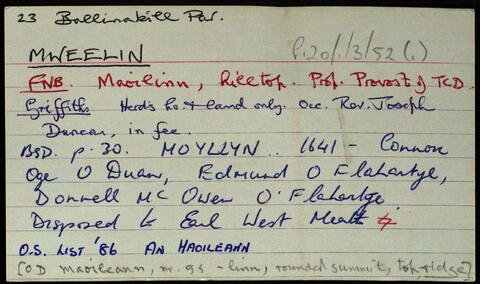 23 Ballinakill Par.
P.20/1/3/52(1)
MWEELIN
FNB. Maoilinn, hilltop. Prop. Provost of TCD
Griffiths Herd's ho. & land only. Occ. Rev. Joseph
Duncan, in fee.
BSD. p. 30. MOYLLYN .. 1641 - Connor
Oge O Duan, Edmund O Flahartye,
Donnell Mc Owen O'Flahartye
Disposed to Earl West Meath
O.S. LIST '86 AN MAOILEANN
[OD maoileann, -linn, rounded summit, top, ridge]